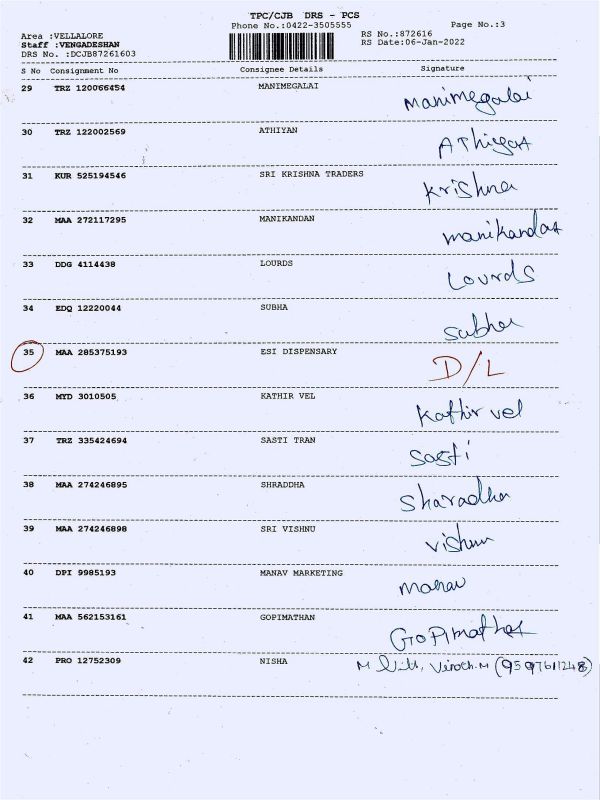 TPC/CJB DRS - PCS
Phone No.:0422-3505555 Page No.:3
Area :VELLALORE RS No.:872616
Staff :VENGADESHAN RS Date:06-Jan-2022
DRS No. :DCJB87261603
S No Consignment No Consignee Details Signature
29 TRZ 120066454 MANIMEGALAI Manimegalai
30 TRZ 122002569 ATHIYAN Athiyan
31 KUR 525194546 SRI KRISHNA TRADERS Krishna
32 MAA 272117295 MANIKANDAN manikandan
33 DDG 4114438 LOURDS Lourds
34 EDQ 12220044 SUBHA Subha
35 MAA 285375193 ESI DISPENSARY D/L
36 MYD 3010505 KATHIR VEL Kathir vel
37 TRZ 335424694 SASTI TRAN Sasti
38 MAA 274246895 SHRADDHA Sharadha
39 MAA 274246898 SRI VISHNU Vishnu
40 DPI 9985193 MANAV MARKETING manav
41 MAA 562153161 GOPIMATHAN GoPimathan
42 PRO 12752309 NISHA M